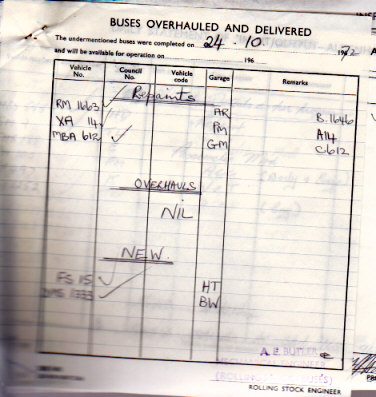 BUSES OVERHAULED AND DELIVERED
The undermentioned buses were completed on 24 . 10. 1972
and will be available for operation on 196
Vehicle No. Council No. Vehicle code Garage Remarks
Repaints
RM 1663 ✓ AR B.1646
XA 14 ✓ PM A14
MBA 612 ✓ GM C612
OVERHAULS
NIL
NEW.
FS 15 ✓ HT
1333 ✓ BW
A E BUTLER
ENGINEER
ROLLING STOCK ENGINEER